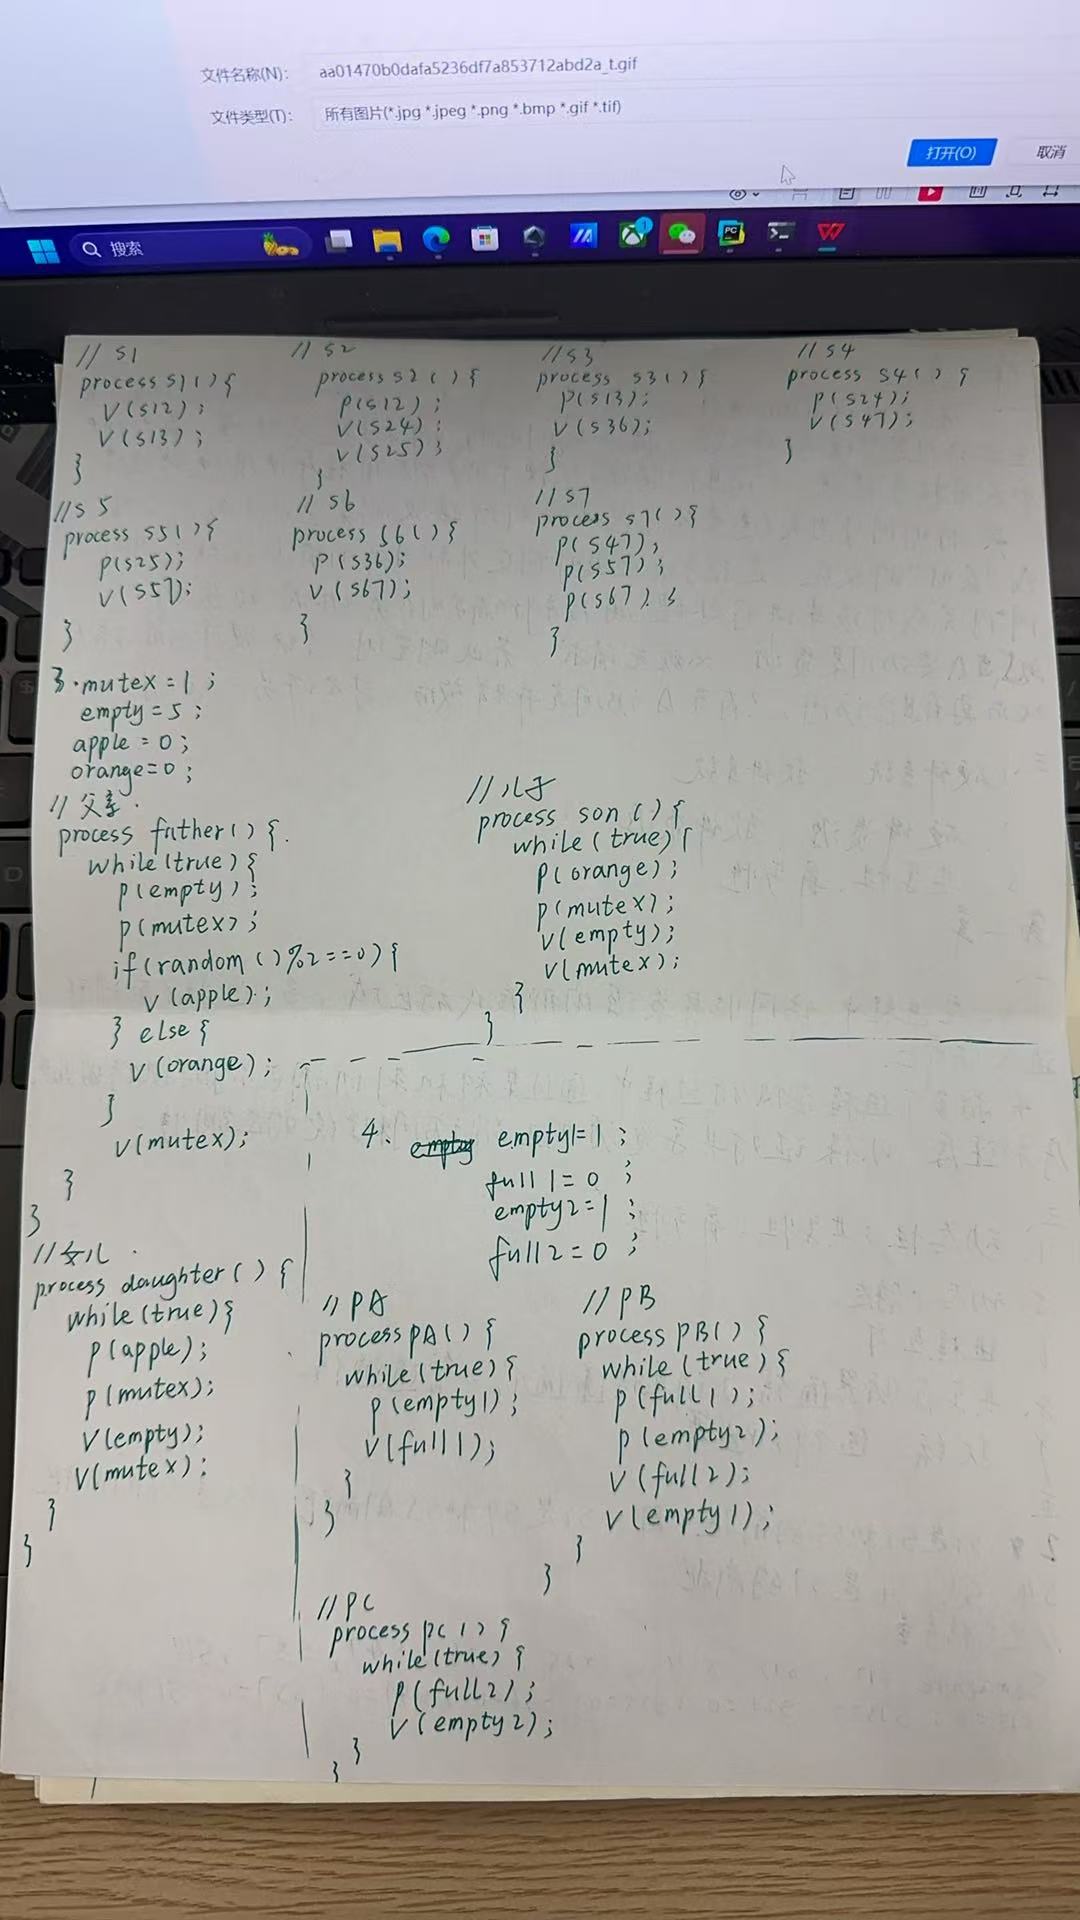 文件名称(N): aa01470b0dafa5236df7a853712abd2a_t.gif
文件类型(T): 所有图片(*.jpg *.jpeg *.png *.bmp *.gif *.tif)
打开(O) 取消
搜索
// S1
process s1(){
V(S12);
V(S13);
}
// S2
process s2(){
P(S12);
V(S24);
V(S25);
}
// S3
process s3(){
P(S13);
V(S36);
}
// S4
process s4(){
P(S24);
V(S47);
}
// S5
process s5(){
P(S25);
V(S57);
}
// S6
process s6(){
P(S36);
V(S67);
}
// S7
process s7(){
P(S47);
P(S57);
P(S67);
}
3. mutex=1;
empty=5;
apple=0;
orange=0;
// 父亲.
process father(){
while(true){
P(empty);
P(mutex);
if(random()%2==0){
V(apple);
} else {
V(orange);
}
V(mutex);
}
}
// 儿子
process son(){
while(true){
P(orange);
P(mutex);
V(empty);
V(mutex);
}
}
// 女儿
process daughter(){
while(true){
P(apple);
P(mutex);
V(empty);
V(mutex);
}
}
4. empty1=1;
full1=0;
empty2=1;
full2=0;
// PA
process PA(){
while(true){
P(empty1);
V(full1);
}
}
// PB
process PB(){
while(true){
P(full1);
P(empty2);
V(full2);
V(empty1);
}
}
// PC
process PC(){
while(true){
P(full2);
V(empty2);
}
}